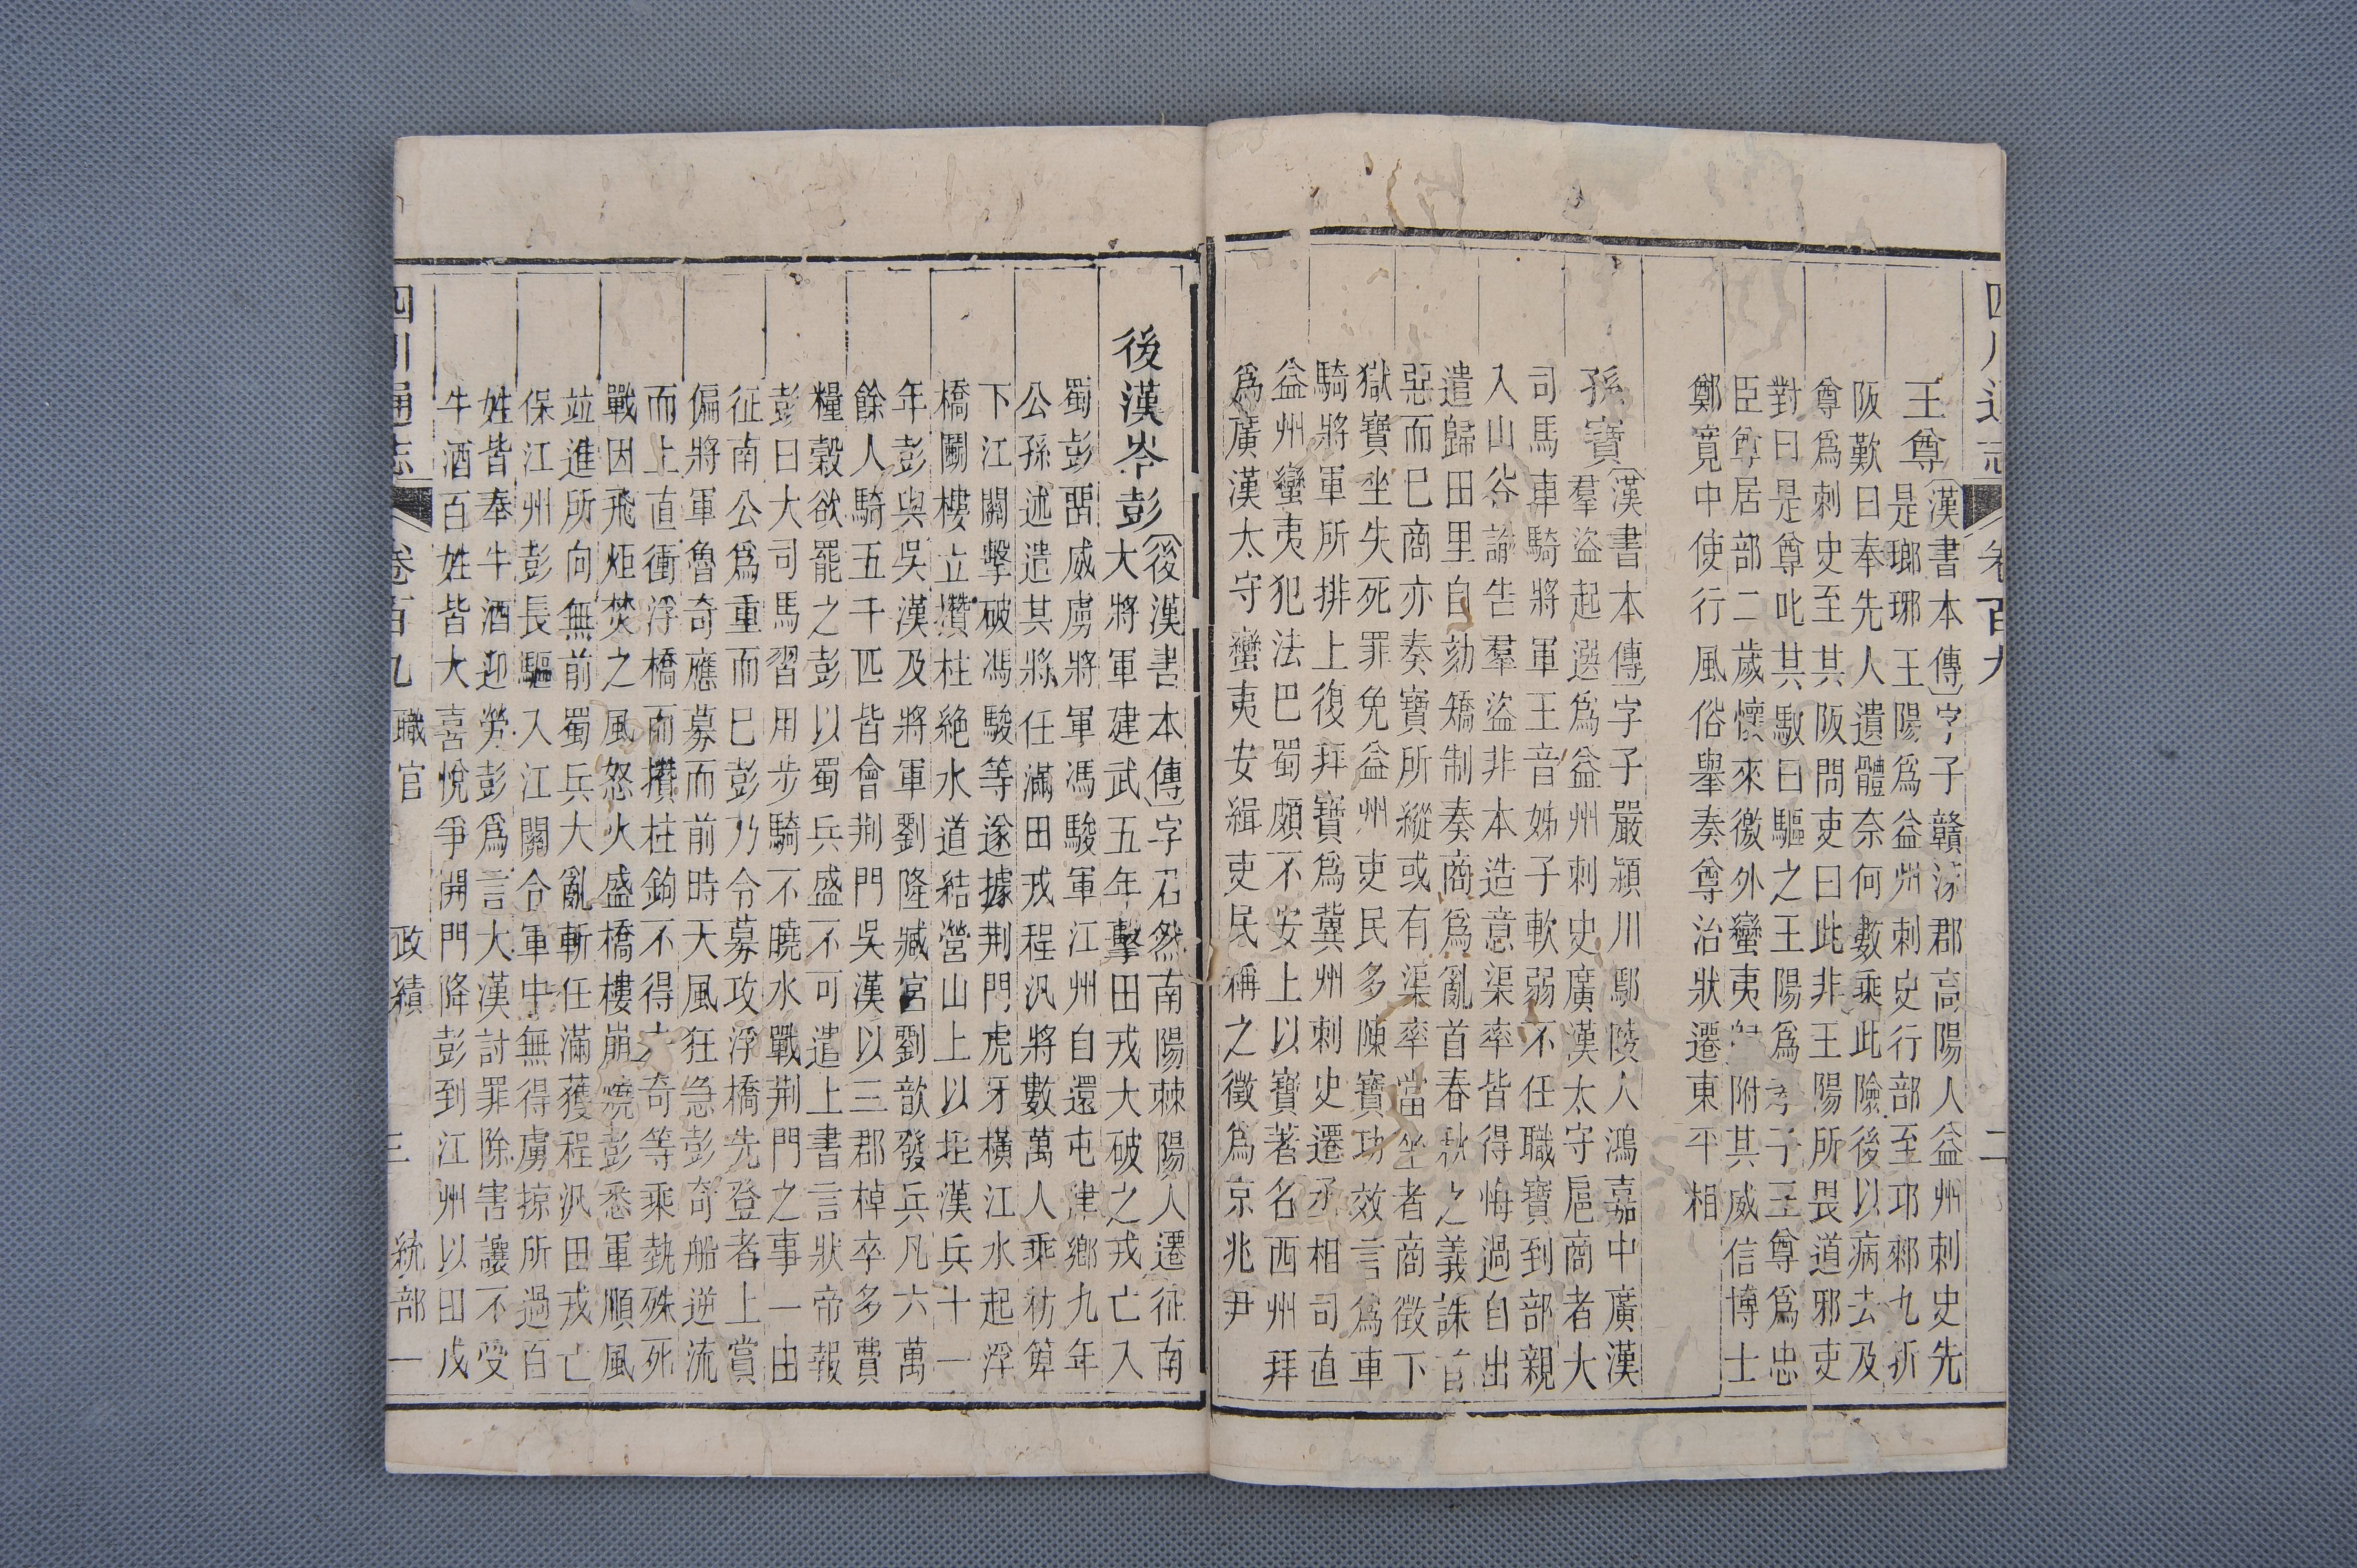 四川通志 卷百九 二
王尊〔漢書本傳〕字子贛涿郡高陽人益州刺史先
是瑯琊王陽爲益州刺史行部至邛郲九折
阪歎曰奉先人遺體奈何數乘此險後以病去及
尊爲刺史至其阪問吏曰此非王陽所畏道邪吏
對曰是尊叱其馭曰驅之王陽爲孝子王尊爲忠
臣尊居部二歲懷來徼外蠻夷歸附其威信博士
鄭寛中使行風俗舉奏尊治狀遷東平相
孫寶〔漢書本傳〕字子嚴潁川鄢陵人鴻嘉中廣漢
羣盜起選爲益州刺史廣漢太守扈商者大
司馬車騎將軍王音姊子軟弱不任職寶到部親
入山谷諭告羣盜非本造意渠率皆得悔過自出
遣歸田里自劾矯制奏商爲亂首春秋之義誅首
惡而已商亦奏寶所縱或有渠率當坐者商徵下
獄寶坐失死罪免益州吏民多陳寶功效言爲車
騎將軍所排上復拜寶爲冀州刺史遷丞相司直
益州蠻夷犯法巴蜀頗不安上以寶著名西州拜
爲廣漢太守蠻夷安緝吏民稱之徵爲京兆尹
後漢岑彭〔後漢書本傳〕字君然南陽棘陽人遷征南
大將軍建武五年擊田戎大破之戎亡入
蜀彭畱威虜將軍馮駿軍江州自還屯津鄉九年
公孫述遣其將任滿田戎程汎將數萬人乘枋箄
下江關擊破馮駿等遂據荆門虎牙橫江水起浮
橋鬭樓立攢柱絶水道結營山上以距漢兵十一
年彭與吳漢及將軍劉隆臧宮劉歆發兵凡六萬
餘人騎五千匹皆會荆門吳漢以三郡棹卒多費
糧穀欲罷之彭以蜀兵盛不可遣上書言狀帝報
彭曰大司馬習用步騎不曉水戰荆門之事一由
征南公爲重而已彭乃令募攻浮橋先登者上賞
偏將軍魯奇應募而前時天風狂急彭奇船逆流
而上直衝浮橋而攢柱鉤不得去奇等乘埶殊死
戰因飛炬焚之風怒火盛橋樓崩燒彭悉軍順風
竝進所向無前蜀兵大亂斬任滿獲程汎田戎亡
保江州彭長驅入江關令軍中無得虜掠所過百
姓皆奉牛酒迎勞彭爲言大漢討罪除害讓不受
牛酒百姓皆大喜悅爭開門降彭到江州以田戎
四川通志 卷百九 職官 政績 三 統部一